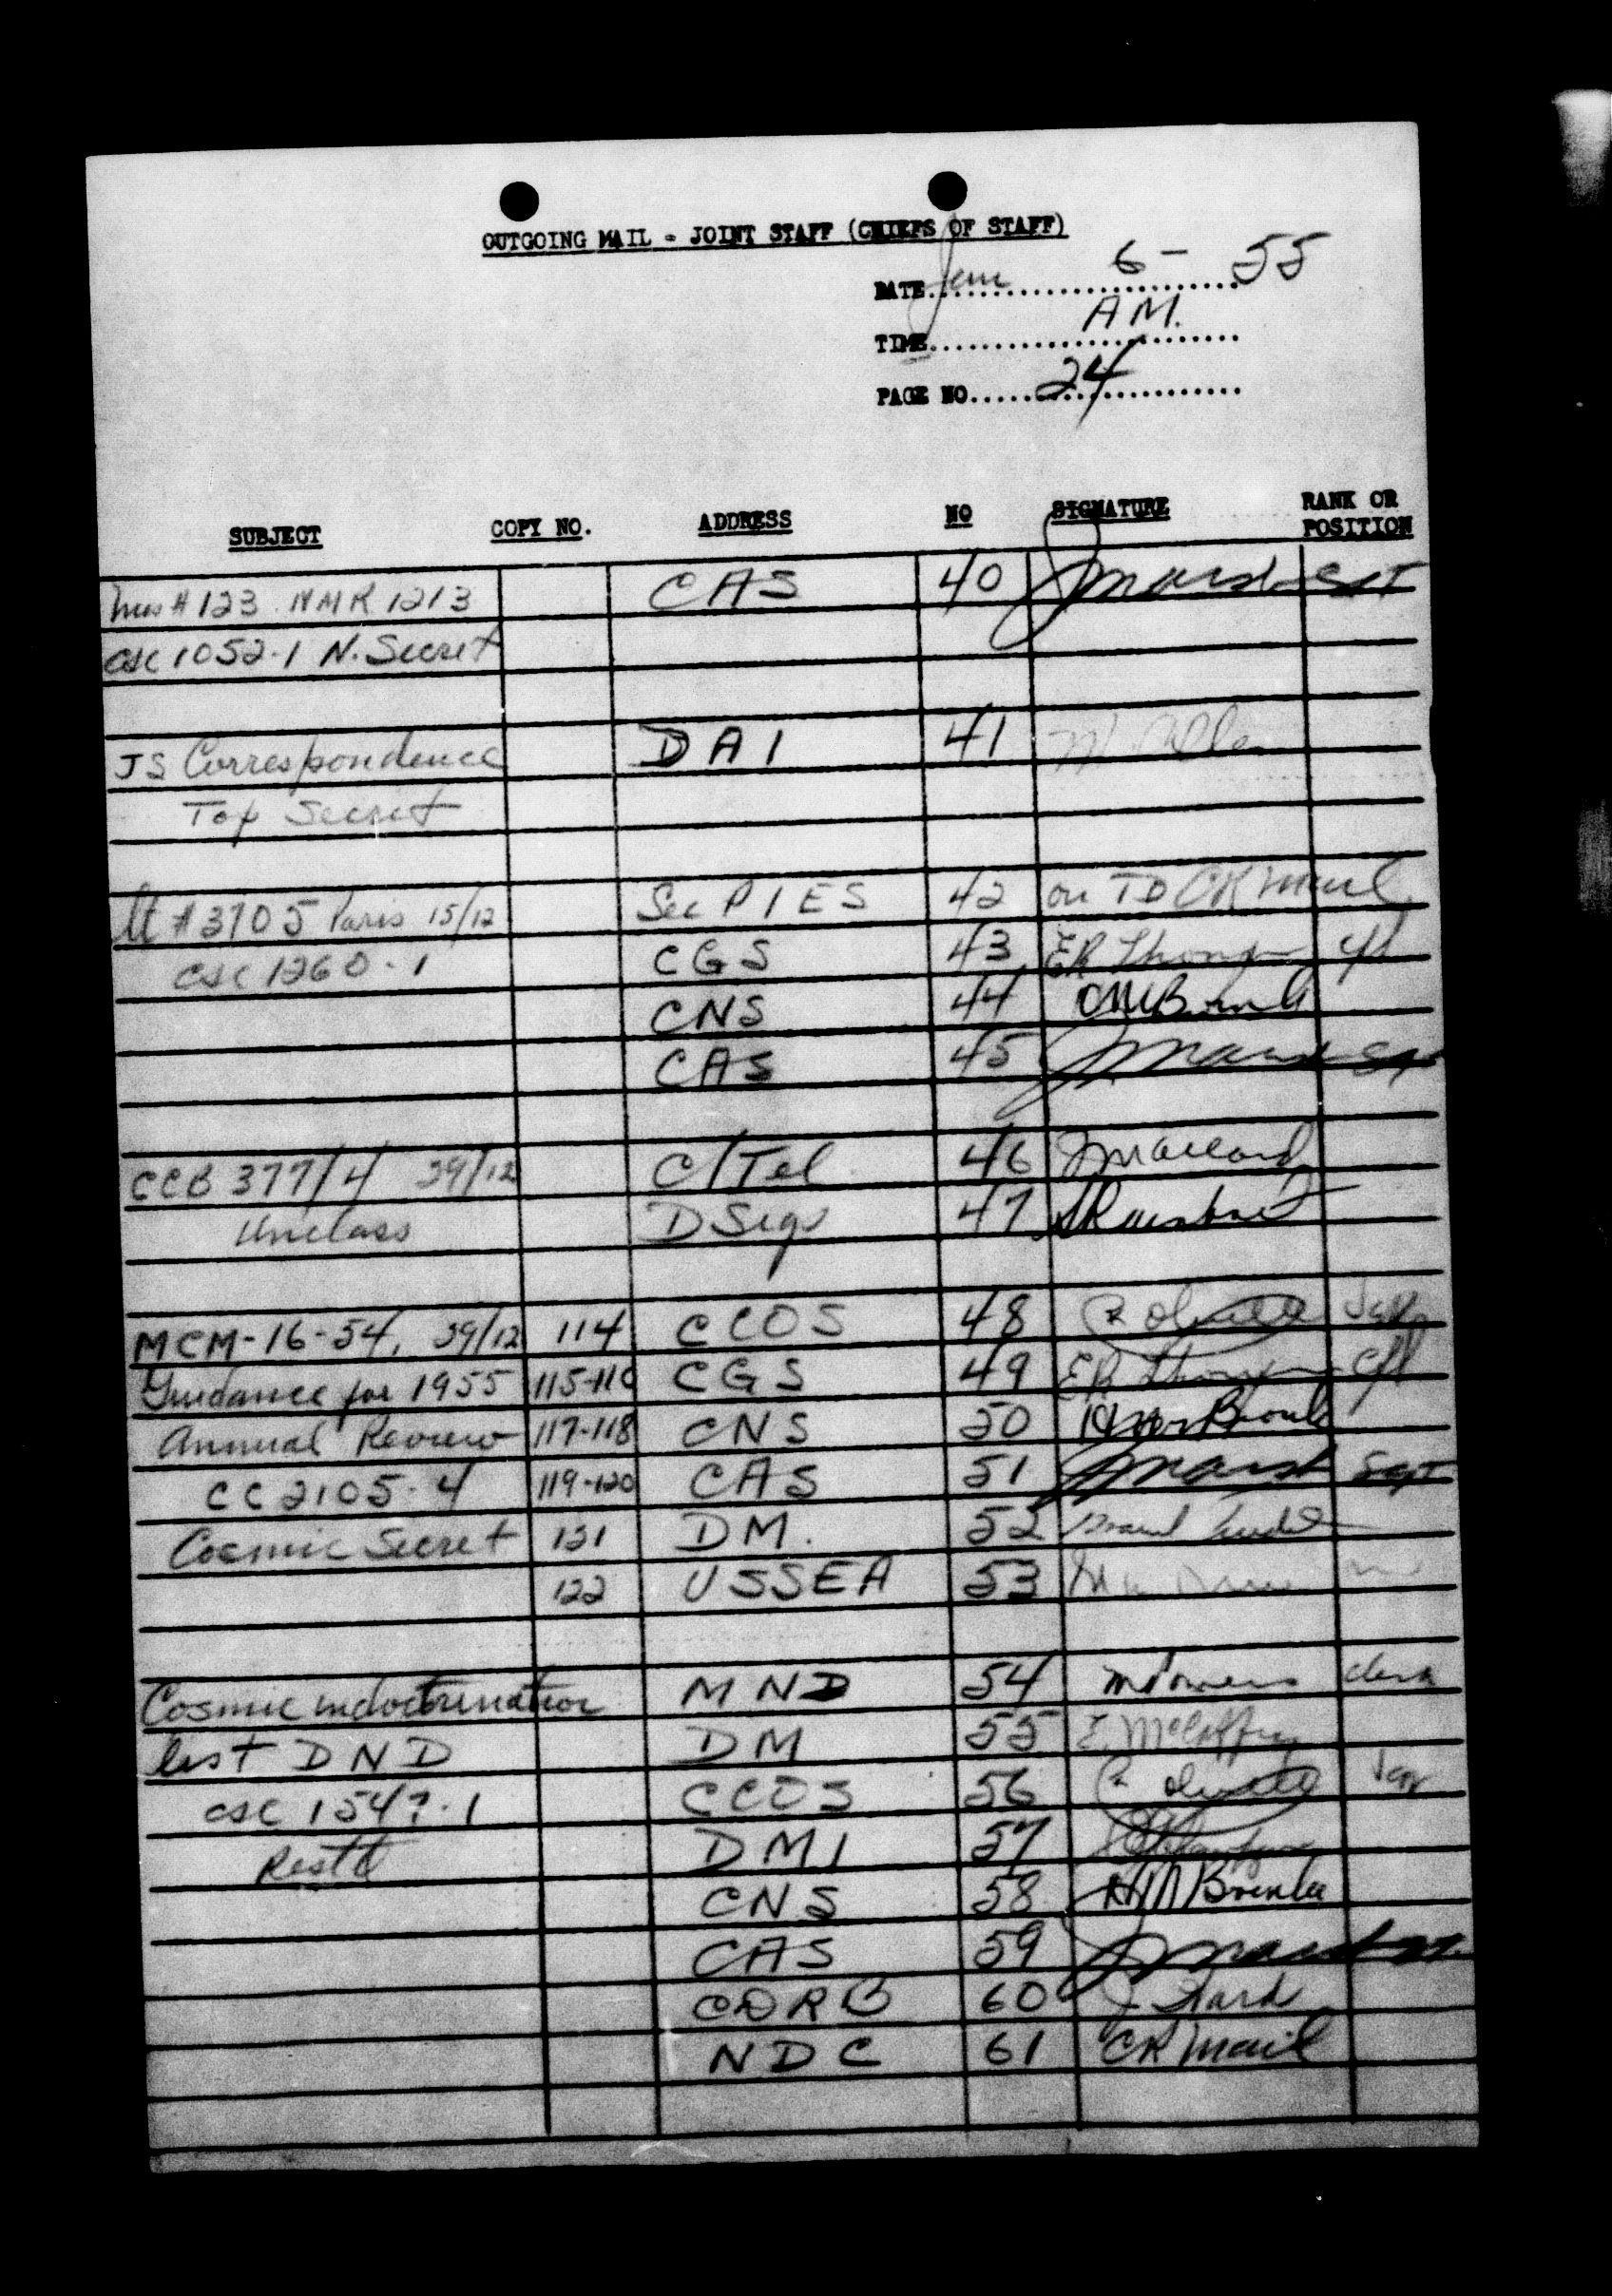 OUTGOING MAIL - JOINT STAFF (CHIEFS OF STAFF)
DATE Jan 6 - 55
TIME A M.
PAGE NO 24
SUBJECT COPY NO. ADDRESS NO SIGNATURE RANK OR POSITION
# 123 NMR 1213 CAS 40 J Marsh Sgt
CSC 1052.1 N. Secret
JS Correspondence DAI 41
Top Secret
# 3705 Paris 15/12 Sec PIES 42 on TD CR Mail
CSC 1260-1 CGS 43 ER
CNS 44
CAS 45 J Marsh Sgt
CCB 377/4 29/12 C/Tel 46
Unclass D Sigs 47
MCM-16-54, 29/12 114 CCOS 48
Guidance for 1955 115-116 CGS 49 ER
Annual Review 117-118 CNS 50
CC 2105-4 119-120 CAS 51 J Marsh Sgt
Cosmic Secret 121 DM. 52
122 USSEA 53
Cosmic indoctrination MND 54 Clerk
list DND DM 55
CSC 1547.1 CCOS 56
Restd DMI 57
CNS 58
CAS 59 J Marsh
CDRB 60 J
NDC 61 CR Mail